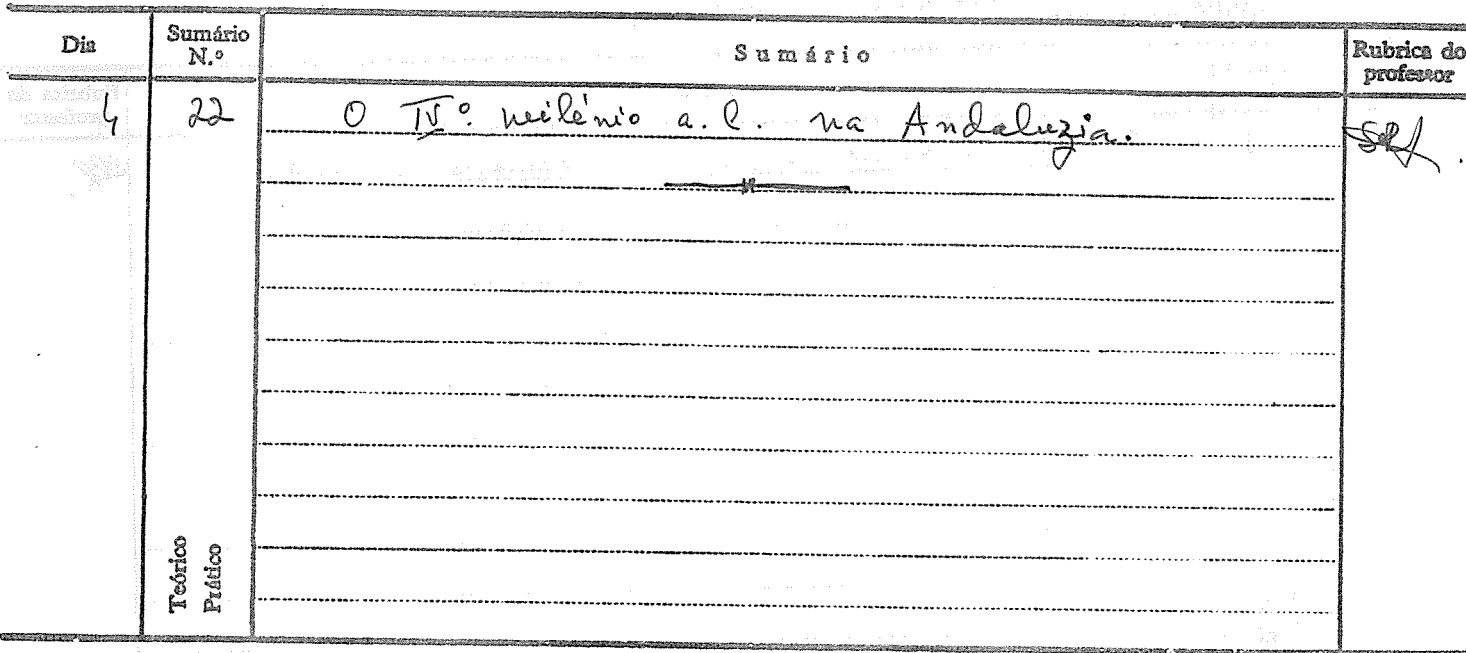 Dia
Sumário N.º
Sumário
Rubrica do professor
4
22
O IVº. milénio a.C. na Andaluzia.
Teórico
Prático